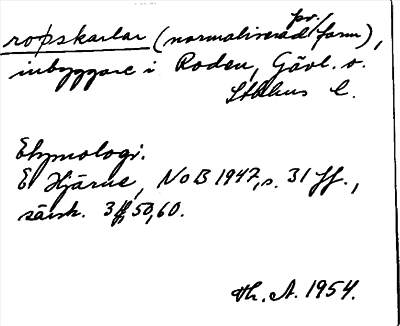 ropskarlar (normaliserad pr. form),
inbyggare i Roden, Gävl. o.
Sthlms l.
Etymologi.
E Hjärne, NoB 1947, s. 31 ff.,
särsk. 50, 60.
Th. A. 1954.